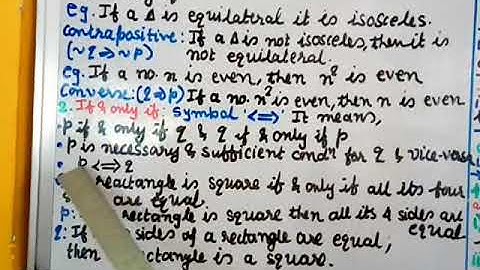 eg. If a Δ is equilateral it is isosceles.
contrapositive: If a Δ is not isosceles, then it is
(~q⇒~p) not equilateral.
eg. If a no. n is even, then n² is even
Converse: (q⇒p) If a no. n² is even, then n is even
2. If & only if: symbol <=> It means,
• p if & only if q & q if & only if p
• p is necessary & sufficient condⁿ for q & vice-versa
• p <=> q
reactangle is square if & only if all its four
are equal.
p: rectangle is square then all its 4 sides are
equal
q: If sides of a rectangle are equal,
then rectangle is a square.